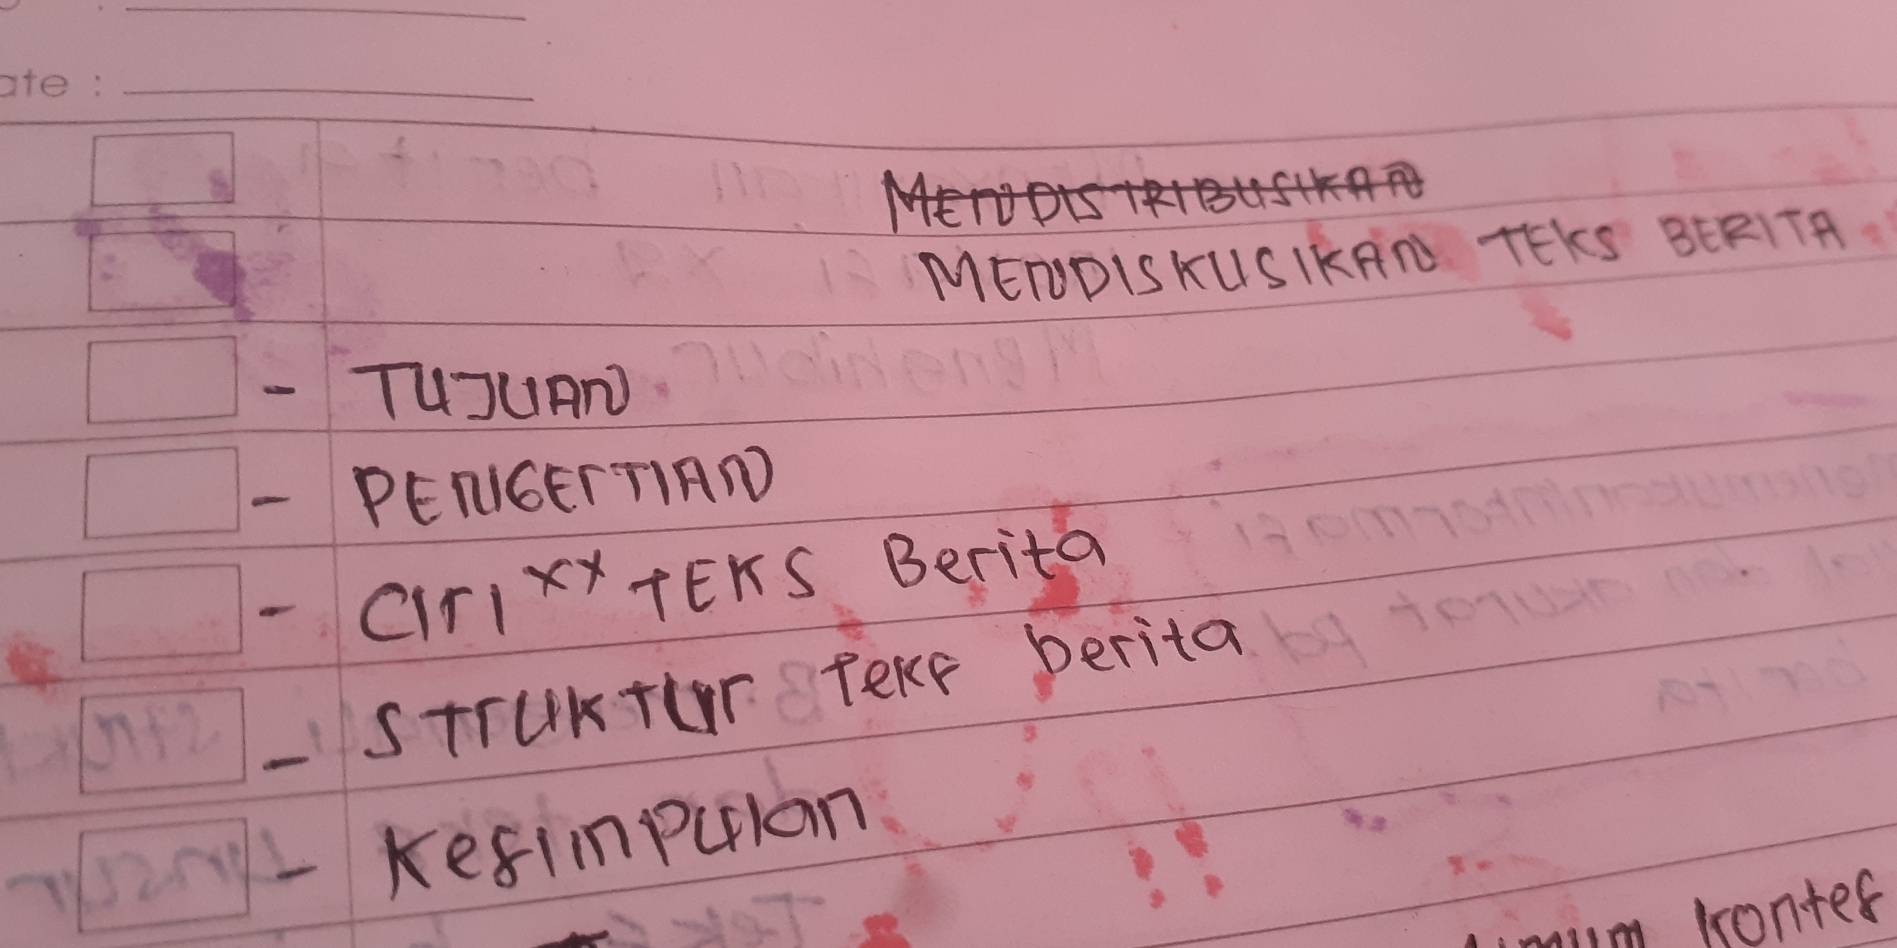 ate :
MENDISTRIBUSIKAN
MENDISKUSIKAN TEKS BERITA
- TUJUAN
- PENGERTIAN
- CIrI xx TEKS Berita
- STrUKTUr Teks berita
- Kesimpulan
kontes